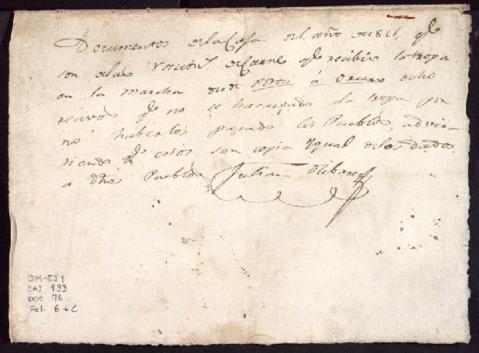 Documentos de la Casa del año de 1821, qe
son de las racions de carne qe recibio la tropa
en la marcha desde Potosí á Oruro ocho
recivos qe no se ha cargado á la tropa por
no haberlos pagado los Pueblos, advir-
tiendo qe estos son copia Ygual de los dados
a dhos Pueblos Julian Ribas
BM-ES1
CAJ 133
DOC 76
Fol. 6+C